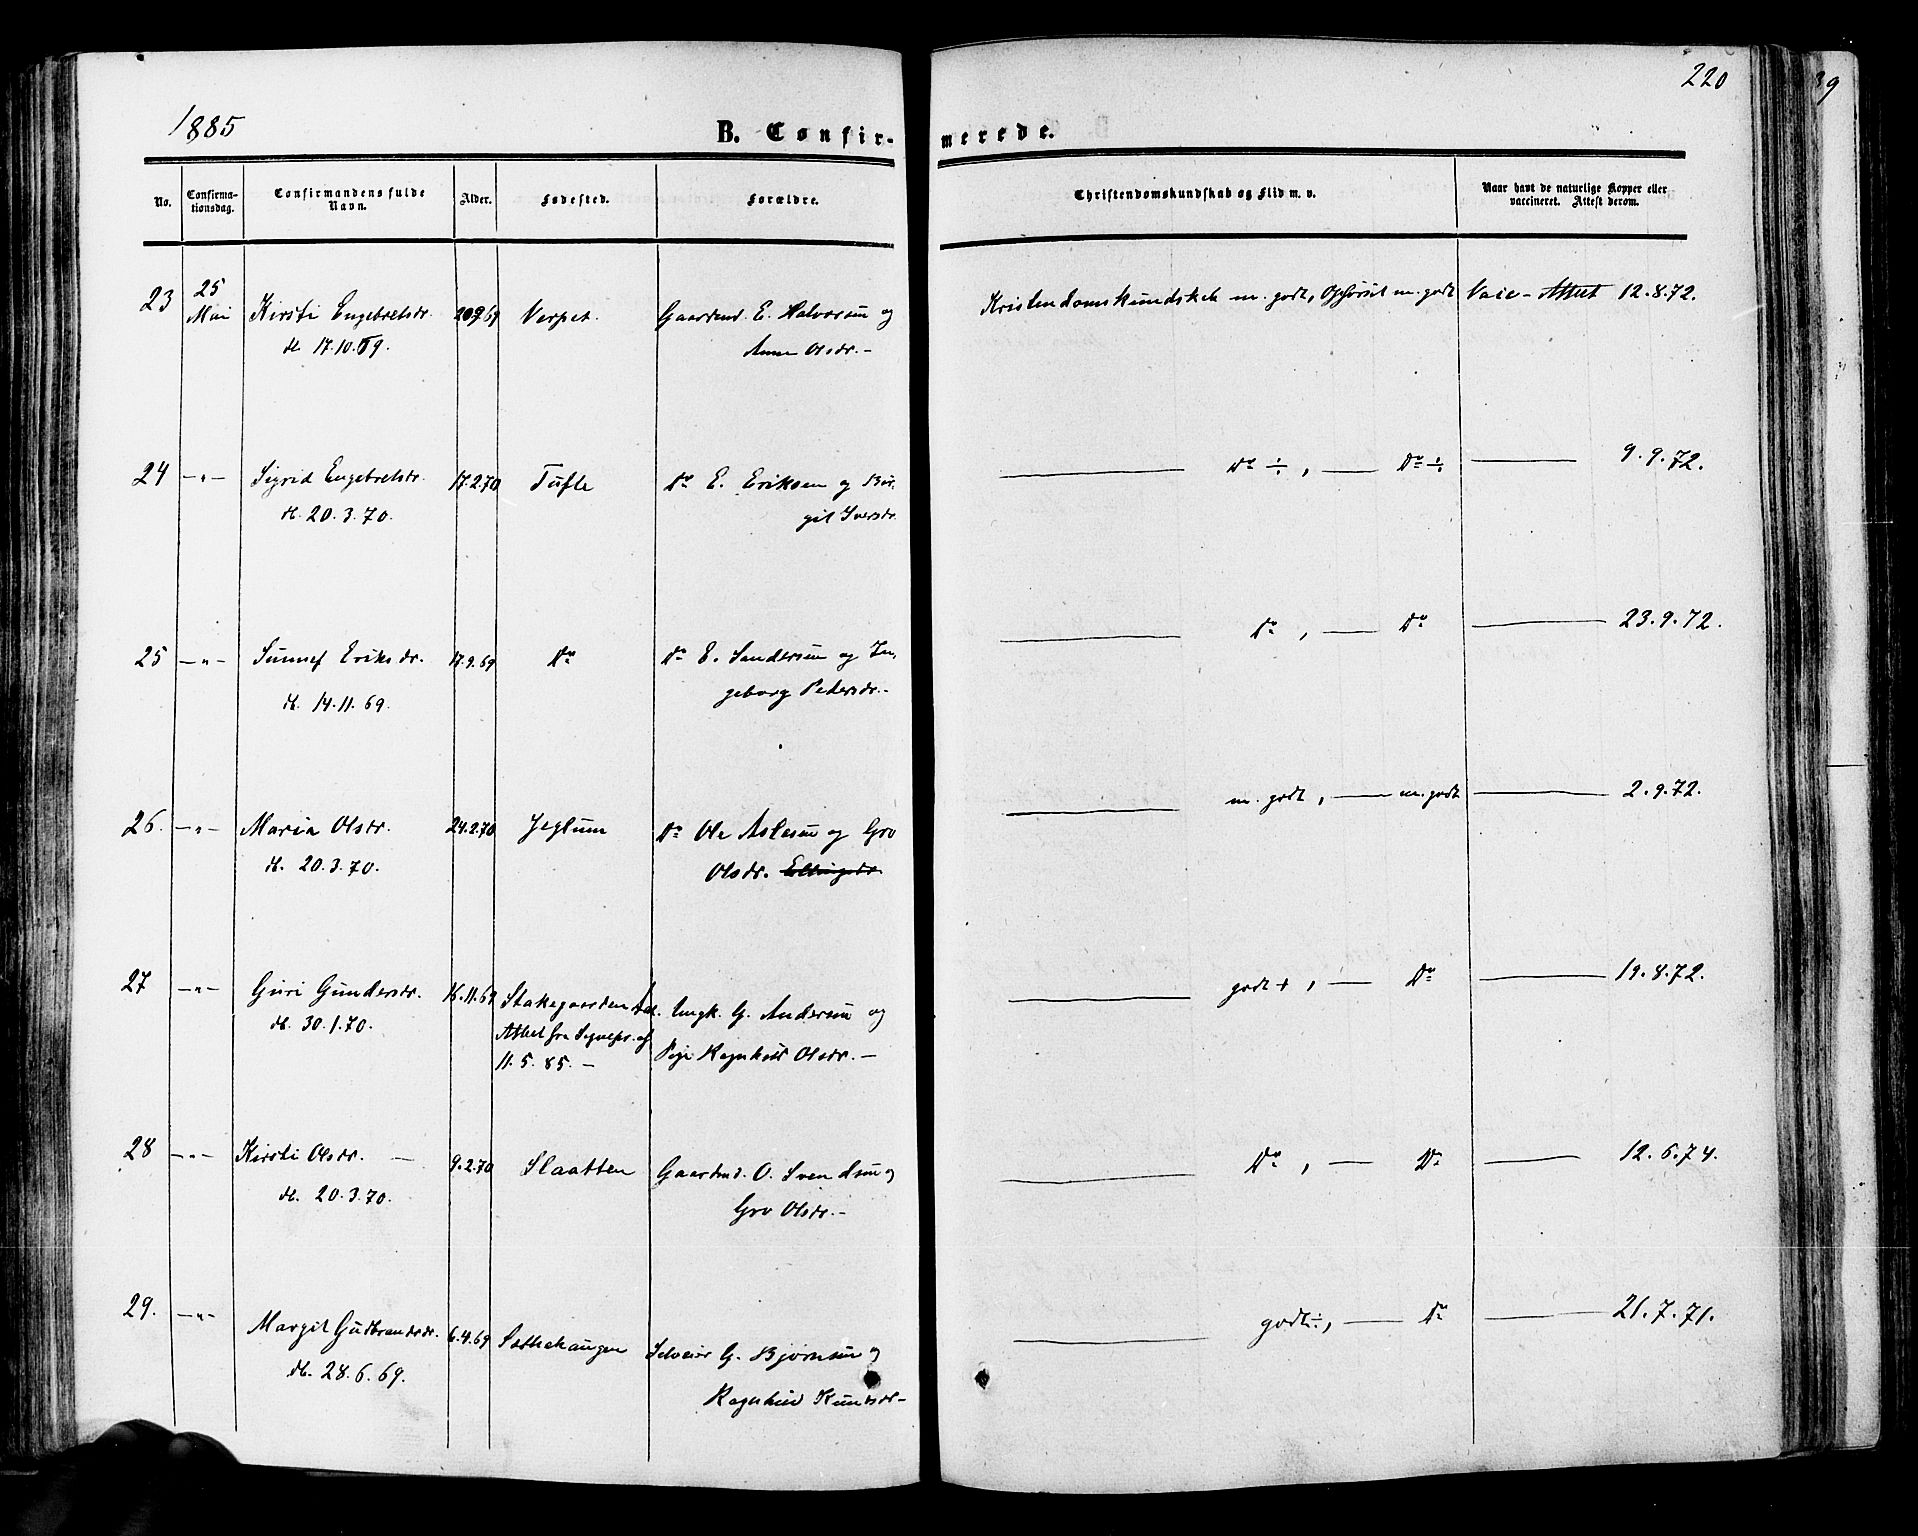 220
1885
B. Confir-
merede.
No.
Confirma-
tionsdag.
Confirmandens fulde
Navn.
Alder.
Fødested.
Forældre.
Christendomskundskab og Flid m. v.
Naar havt de naturlige Kopper eller
vaccineret. Attest derom.
23 25 Mai Kirsti Engebretsdr. 20.9.69 Gaardmd. E. Halvorsen og
d. 17.10.69. Anne Olsdr. –
Kristendomskundskab m. godt, m. godt Vacc - Attest 12.8.72.
24 – " – Sigrid Engebretsdr. 17.2.70 Tufte Do E. Eriksen og Bir-
d. 20.3.70. git Iversdr.
Do ÷, Do ÷ 9.9.72.
25 – " – Sunnef Eriksdr. 17.9.69 Do Do E. Sandersen og In-
d. 14.11.69. geborg Pedersdr. –
Do, Do 23.9.72.
26. – " – Maria Olsdr. 24.2.70 Jeglum Do Ole Aslesen og Gro
d. 20.3.70. Olsdr. Ellingsdr.
m. godt, m. godt 2.9.72.
27 – " – Guri Gundersdr. Stakegaarden Ungk. G. Andersen og
d. 30.1.70. Attest fra Sognepr. af Pige Ragnhild Olsdr. –
11.5.85. –
godt +, Do 19.8.72.
28 – " – Kirsti Olsdr. – 9.2.70 Slaatten Gaardmd. O. Svendsen og
d. 20.3.70. Gro Olsdr. –
Do, Do 12.6.74.
29. – " – Margit Gudbrandsdr. 6.4.69 Selveier G. Bjørnsen og
d. 28.6.69. Ragnhild Knudsdr –
godt ÷, Do 21.7.71.